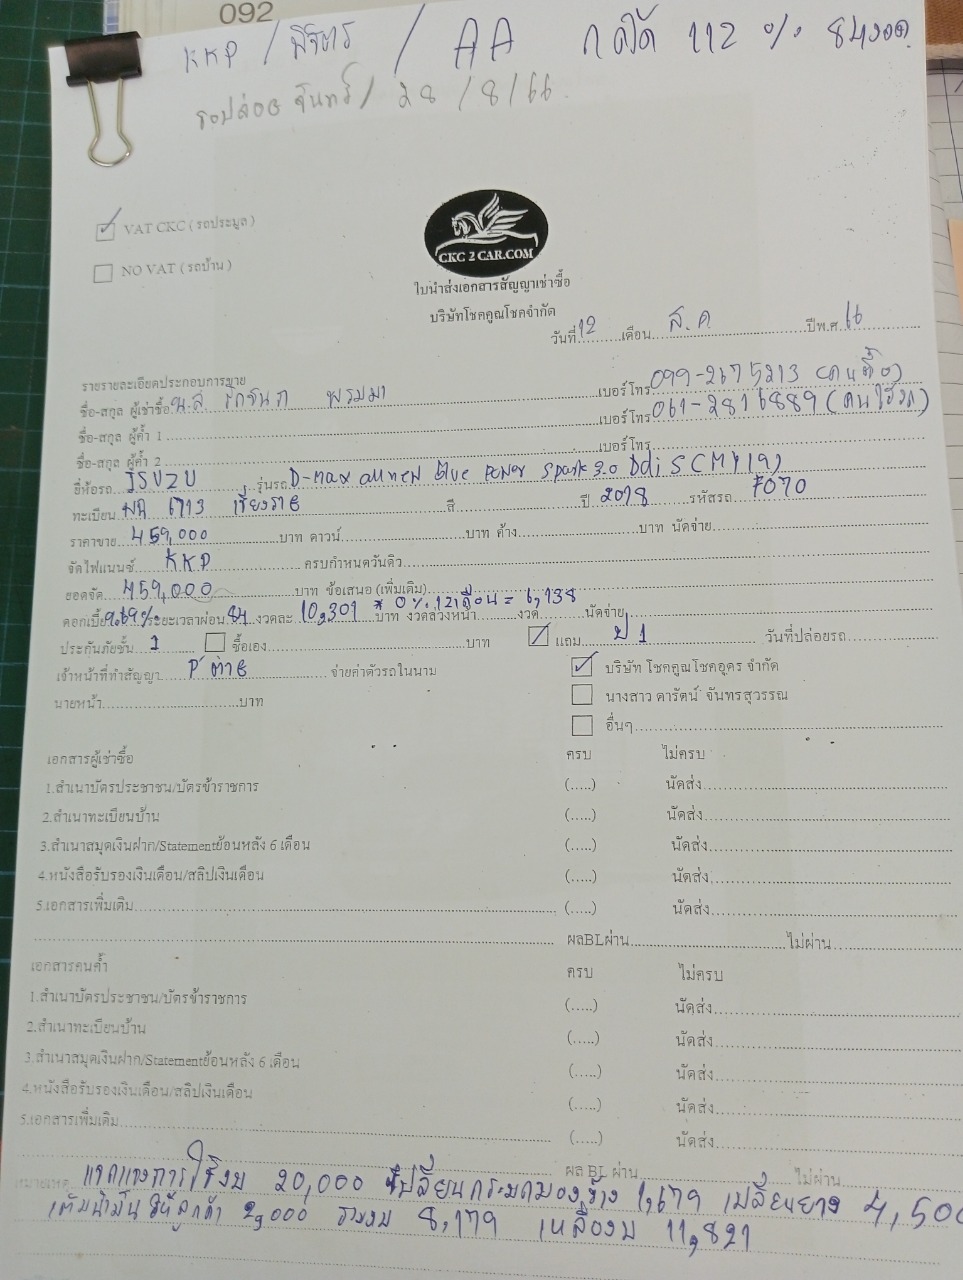 092
KKP / พิจิตร / AA กดได้ 112 % 84งวด
รอปล่อย จันทร์ / 28 / 8 / 66
VAT CKC ( รถประมูล )
NO VAT ( รถบ้าน )
CKC 2 CAR.COM
ใบนำส่งเอกสารสัญญาเช่าซื้อ
บริษัทโชคคูณโชคจำกัด
วันที่ 12 เดือน ส.ค ปีพ.ศ 66
รายรายละเอียดประกอบการขาย
ชื่อ-สกุล ผู้เช่าซื้อ น.ส พรมมา เบอร์โทร 099-2675213 (คนซื้อ)
ชื่อ-สกุล ผู้ค้ำ 1 เบอร์โทร 061-2816889 (คนใช้รถ)
ชื่อ-สกุล ผู้ค้ำ 2 เบอร์โทร
ยี่ห้อรถ ISUZU รุ่นรถ D-max all new blue power spark 3.0 Ddi S (MY19)
ทะเบียน 6713 เชียงราย สี ปี 2018 รหัสรถ F070
ราคาขาย 459,000 บาท ดาวน์ บาท ค้าง บาท นัดจ่าย
จัดไฟแนนซ์ KKP ครบกำหนดวันดิว
ยอดจัด 459,000 บาท ข้อเสนอ (เพิ่มเติม)
ดอกเบี้ย 9.69% ระยะเวลาผ่อน 84 งวดละ 10,301 * 0% 12เดือน = 6,138 บาท งวดล่วงหน้า งวด นัดจ่าย
ประกันภัยชั้น 1 ซื้อเอง บาท แถม ป 1 วันที่ปล่อยรถ
เจ้าหน้าที่ทำสัญญา P'ต่าย จ่ายค่าตัวรถในนาม บริษัท โชคคูณโชคอุดร จำกัด
นายหน้า บาท นางสาว ดารัตน์ จันทรสุวรรณ
อื่นๆ
เอกสารผู้เช่าซื้อ ครบ ไม่ครบ
1.สำเนาบัตรประชาชน/บัตรข้าราชการ (.....) นัดส่ง
2.สำเนาทะเบียนบ้าน (.....) นัดส่ง
3.สำเนาสมุดเงินฝาก/Statementย้อนหลัง 6 เดือน (.....) นัดส่ง
4.หนังสือรับรองเงินเดือน/สลิปเงินเดือน (.....) นัดส่ง
5.เอกสารเพิ่มเติม (.....) นัดส่ง
ผลBLผ่าน ไม่ผ่าน
เอกสารคนค้ำ ครบ ไม่ครบ
1.สำเนาบัตรประชาชน/บัตรข้าราชการ (.....) นัดส่ง
2.สำเนาทะเบียนบ้าน (.....) นัดส่ง
3.สำเนาสมุดเงินฝาก/Statementย้อนหลัง 6 เดือน (.....) นัดส่ง
4.หนังสือรับรองเงินเดือน/สลิปเงินเดือน (.....) นัดส่ง
5.เอกสารเพิ่มเติม (.....) นัดส่ง
ผล BL ผ่าน ไม่ผ่าน
หมายเหตุ แจกแจงการใช้งบ 20,000 เปลี่ยนกระจกมองข้าง 1,679 เปลี่ยนยาง 4,500
เติมน้ำมันให้ลูกค้า 2,000 รวมงบ 8,179 เหลืองบ 11,821